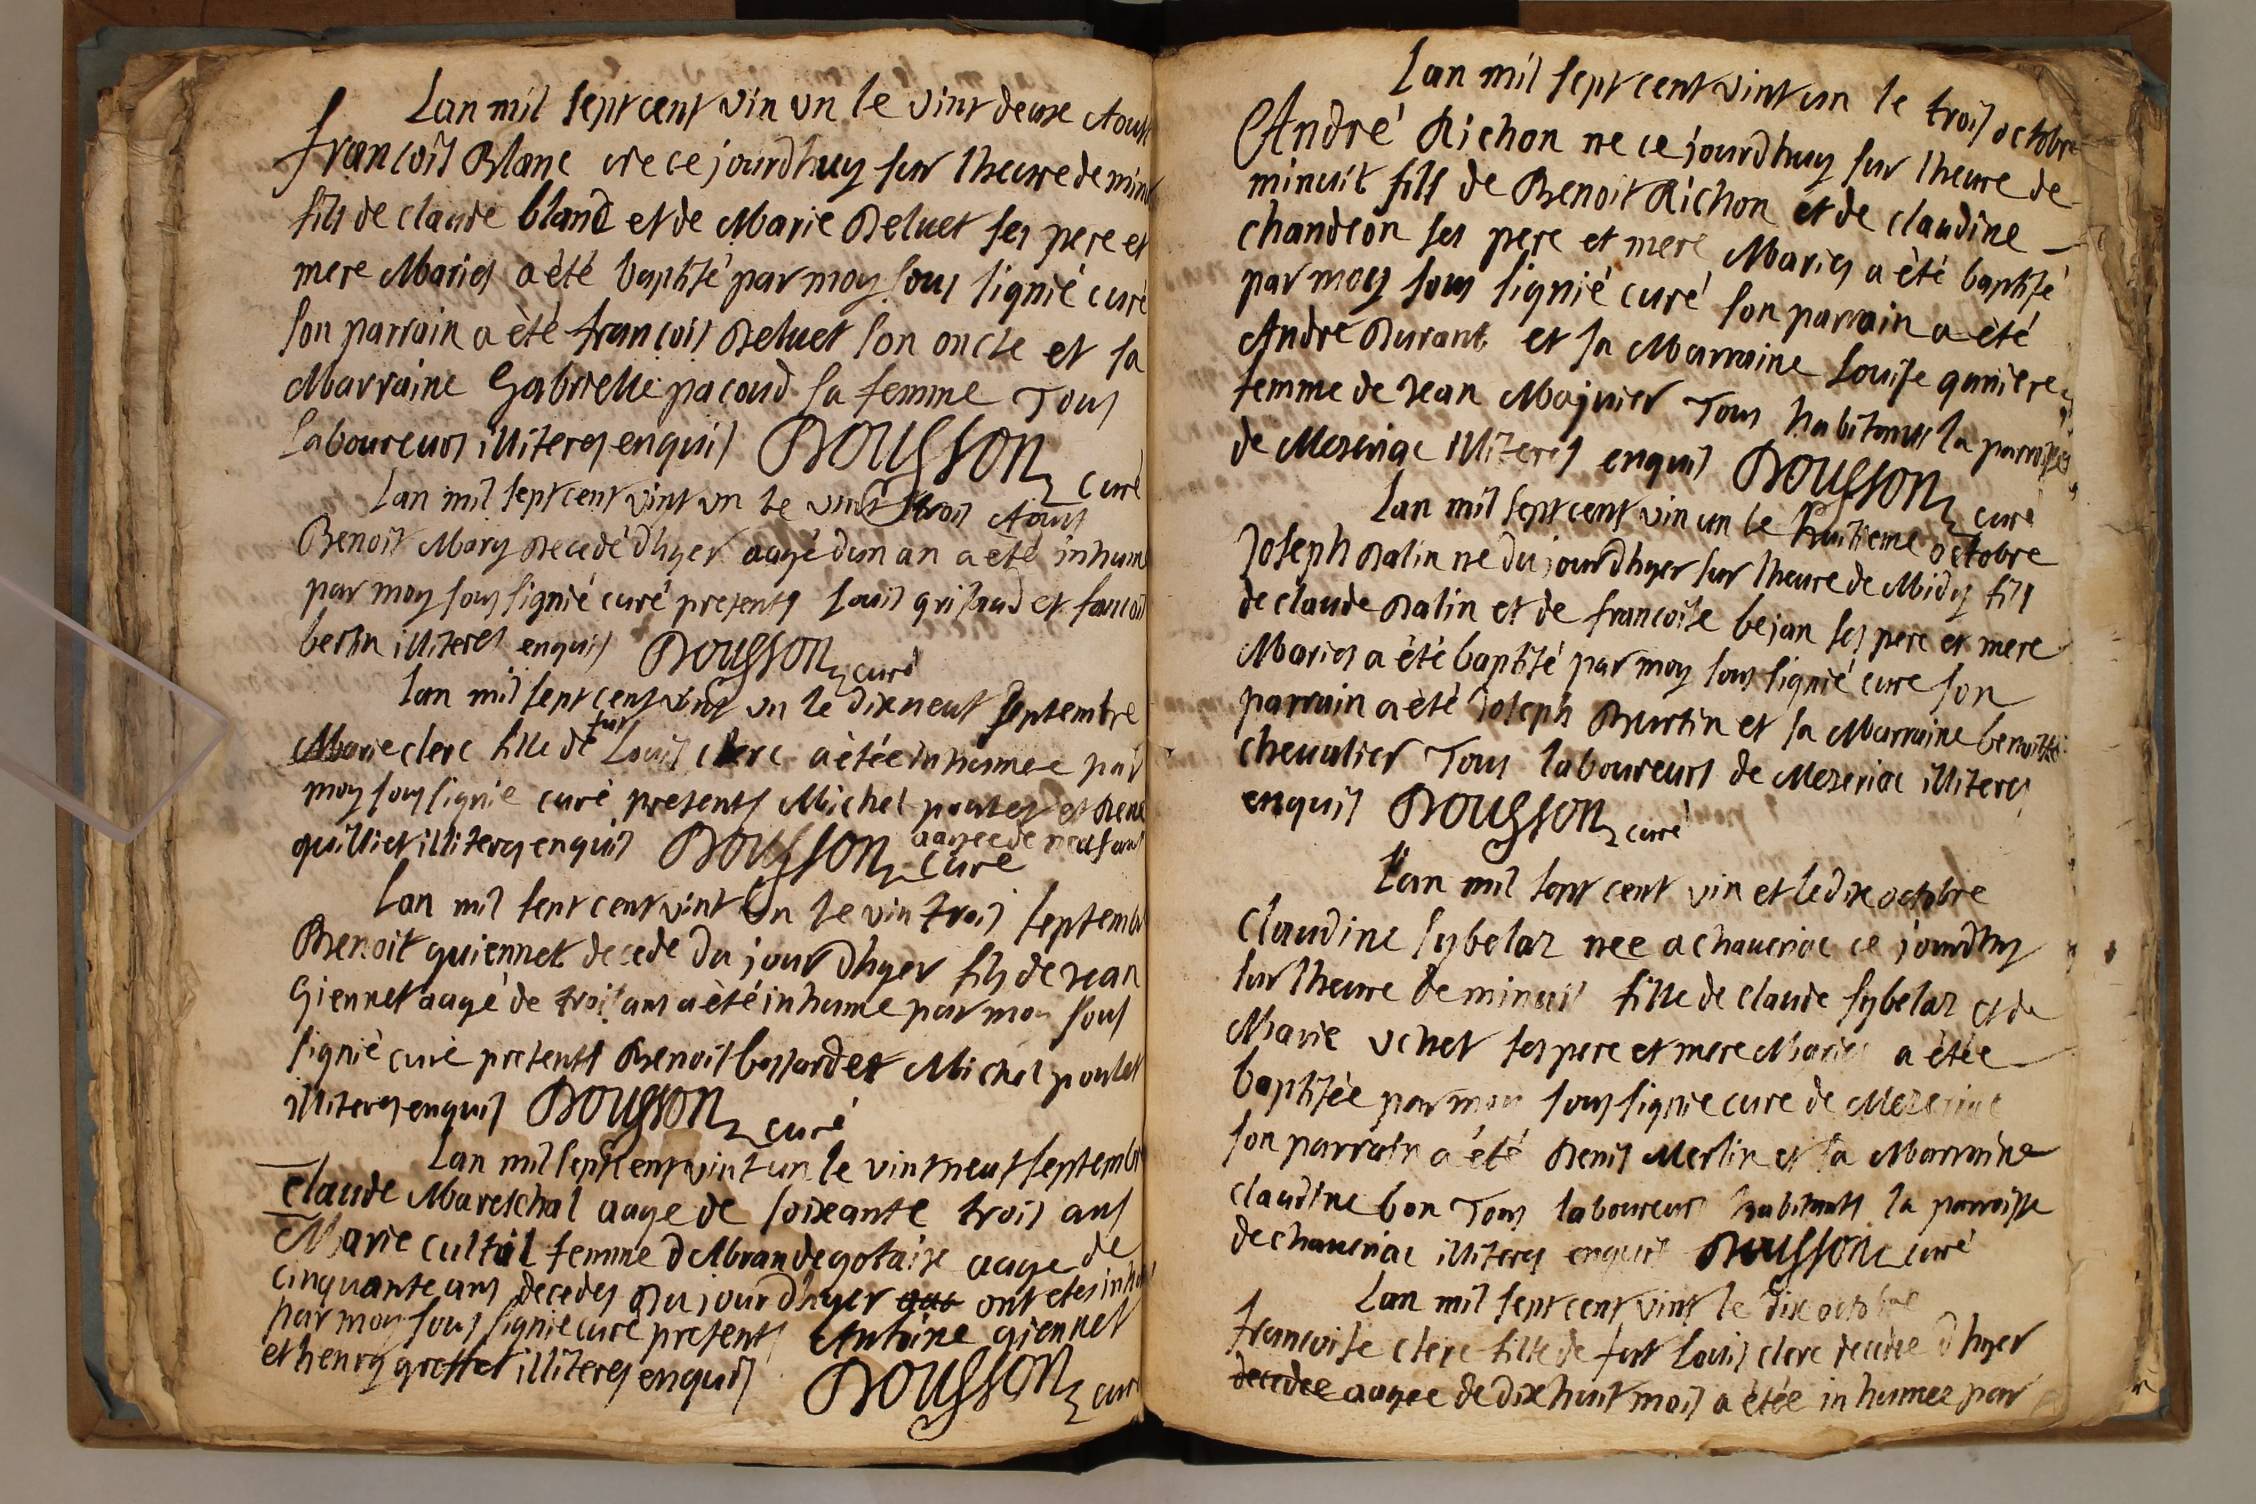 Lan mil sept cent vin un le vint deuxe Aoust
francois Blanc ne ce jourdhuy sur lheure de minu
fils de claude bland et de Marie Beluet ses pere et
mere Mariés a èté baptisé par moy sous signié curé
son parrain a èté françois Beluet son oncle et sa
Marraine Gabrielle pacoud sa femme Tous
laboureurs illiteres enquis Bousson curé
Lan mil sept cent vint un le vint trois Aoust
Benoit Mary Decedé dhyer aagé dun an a èté inhum
par moy sous signié curé presents Louis grisaud et francois
bertin illiteres enquis Bousson curé
Lan mil sept cent vint un le dixneuf septembre
Marie clerc fille de fut Louis clerc a étée inhumee par
moy sous signié curé presents Michel poulet et Bene
quilliet illiteres enquis Bousson curé aagee de neuf ans
Lan mil sept cent vint un le vin trois septemb
Benoit guiennet decede du jour dhyer fils de Jean
Giennet aagé de trois ans a èté inhume par moy sous
signié curé presents Benoit bossardet Michel poulet
illiteres enquis Bousson curé
Lan mil sept cent vint un le vint neuf septembr
claude Mareschal aage de soixante trois ans
Marie cultil femme dAbran aage de
cinquante ans decedes du jour dhyer ont etes inhu
par moy sous signié curé presents Antoine giennet
et henry illiteres enquis Bousson curé
Lan mil sept cent vint un le trois octobre
André Richon ne ce jourdhuy sur lheure de
minuit fils de Benoit Richon et de claudine
chandeon ses pere et mere Mariés a èté baptisé
par moy sous signié curé son parrain a èté
André Durant et sa Marraine Louise guniere
femme de Jean Mojnier Tous habitants la parroisse
de Meseriac illiteres enquis Bousson curé
Lan mil sept cent vin un le huitieme octobre
Joseph Dalin ne du jour dhyer sur lheure de Midy fils
de claude Dalin et de francoise bejan ses pere et mere
Mariés a èté baptisé par moy sous signié cure son
parrain a èté Joseph Burtin et sa Marraine benoitte
chevalier Tous laboureurs de Meseriac illiteres
enquis Bousson curé
Lan mil sept cent vin et le dix octobre
claudine sybelaz nee a chaveriac ce jourdhuy
sur lheure de minuit fille de claude sybelaz et de
Marie vchet ses pere et mere Mariés a étée
baptisée par moy sous signié cure de Mezeriac
son parrain a été Denis Merlin et sa Marraine
claudine bon Tous laboureurs habitants la parroisse
de chaveriac illiteres enquis Bousson curé
Lan mil sept cent vint le dix octobre
francoise clerc fille de fut Louis clerc decedee dhyer
decedee aagee de dix huit mois a étée inhumee par